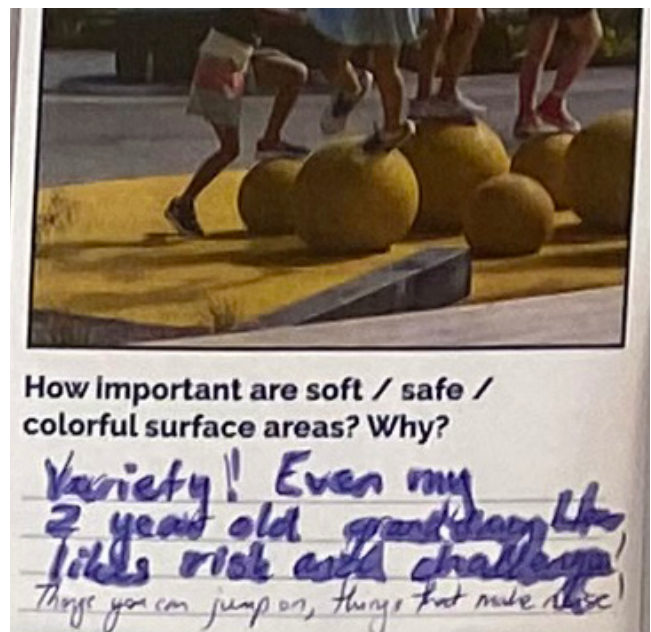 How important are soft / safe /
colorful surface areas? Why?
Variety! Even my
2 year old granddaughter
likes risk and challenge!
Things you can jump on, things that make noise!